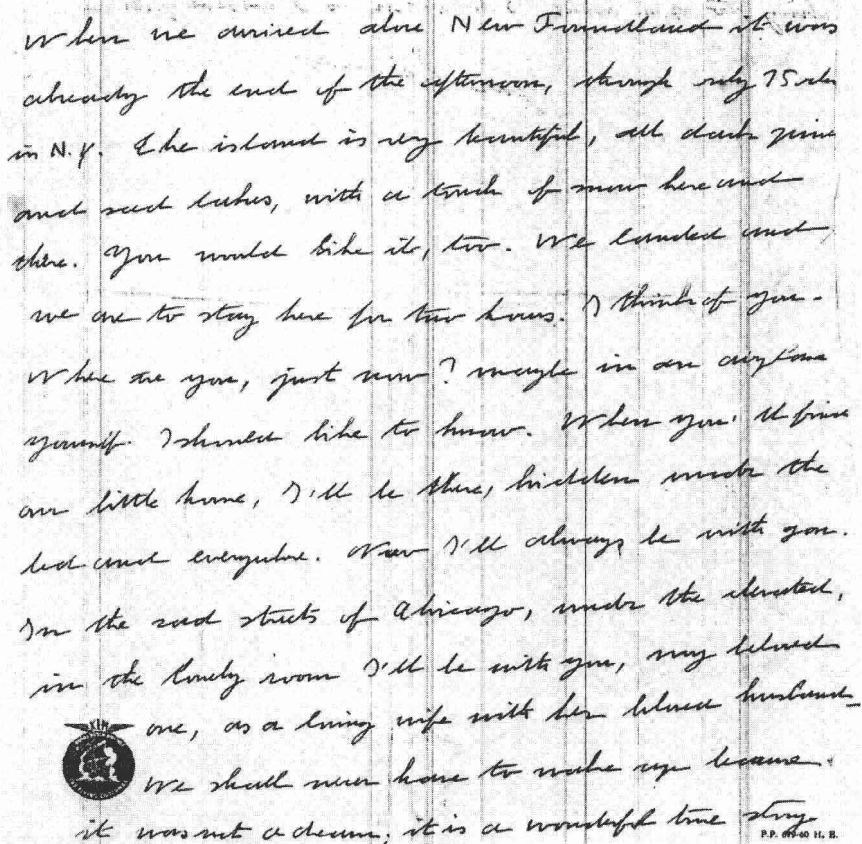 When we arrived above New Foundland it was
already the end of the afternoon, though only
in N.Y. The island is very beautiful, all dark pine
and sad lakes, with a touch of snow here and
there. You would like it, too. We landed and
we are to stay here for two hours. I think of you.
Where are you, just now? maybe in an airplane
yourself. I should like to know. When you'll find
our little home, I'll be there, hidden under the
bed and everywhere. Now I'll always be with you.
In the sad streets of Chicago, under the elevated,
in the lonely room I'll be with you, my beloved
one, as a loving wife with her beloved husband
We shall never have to wake up because
it was not a dream; it is a wonderful true story
P.P. 60 H. B.